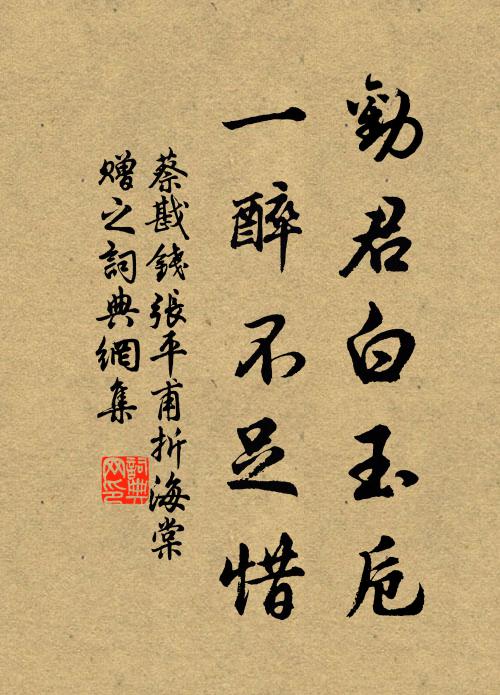 勸君白玉卮
一醉不足惜
蔡戡錢張平甫折海棠
贈之詞典網集
詞典
网印